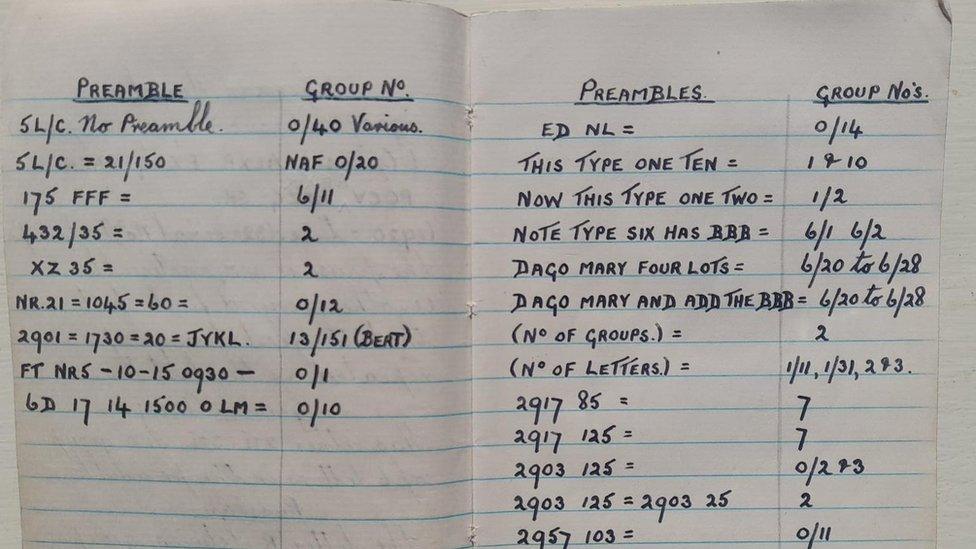 PREAMBLE GROUP NO.
5L/C. No Preamble. 0/40 Various.
5L/C. = 21/150 NAF 0/20
175 FFF = 6/11
432/35 = 2
XZ 35 = 2
NR.21 = 1045 = 60 = 0/12
2901 = 1730 = 20 = JYKL. 13/151 (BERT)
FT NR5 - 10 - 15 0930 - 0/1
6D 17 14 1500 0 LM = 0/10
PREAMBLES. GROUP NO'S.
ED NL = 0/14
THIS TYPE ONE TEN = 1 & 10
NOW THIS TYPE ONE TWO = 1/2
NOTE TYPE SIX HAS BBB = 6/1 6/2
DAGO MARY FOUR LOTS = 6/20 to 6/28
DAGO MARY AND ADD THE BBB = 6/20 to 6/28
(NO OF GROUPS.) = 2
(NO OF LETTERS.) = 1/11, 1/31, 2 & 3.
2917 85 = 7
2917 125 = 7
2903 125 = 0/2 & 3
2903 125 = 2903 25 2
2957 103 = 0/11